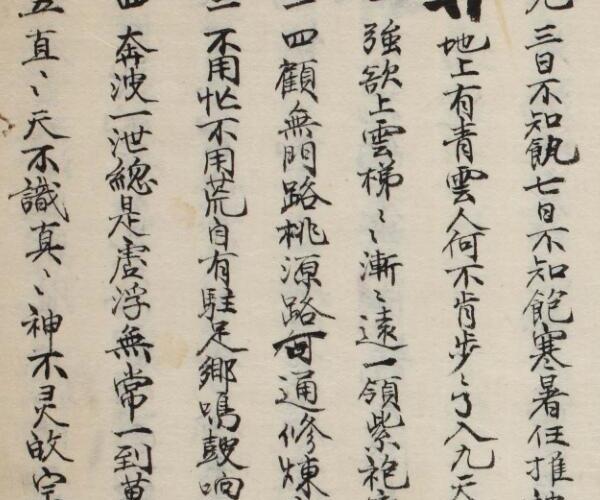 九 三日不知飢七日不知飽寒暑任推
地上有青雲人何不肯步〻了入九天
強欲上雲梯〻漸〻遠一領紫袍
一 四顧無門路桃源路可通修煉
二 不用忙不用荒自有駐足鄉鳴鼓响
四 奔波一泄總是虛浮無常一到萬
五 直〻天不識真〻神不灵故宗